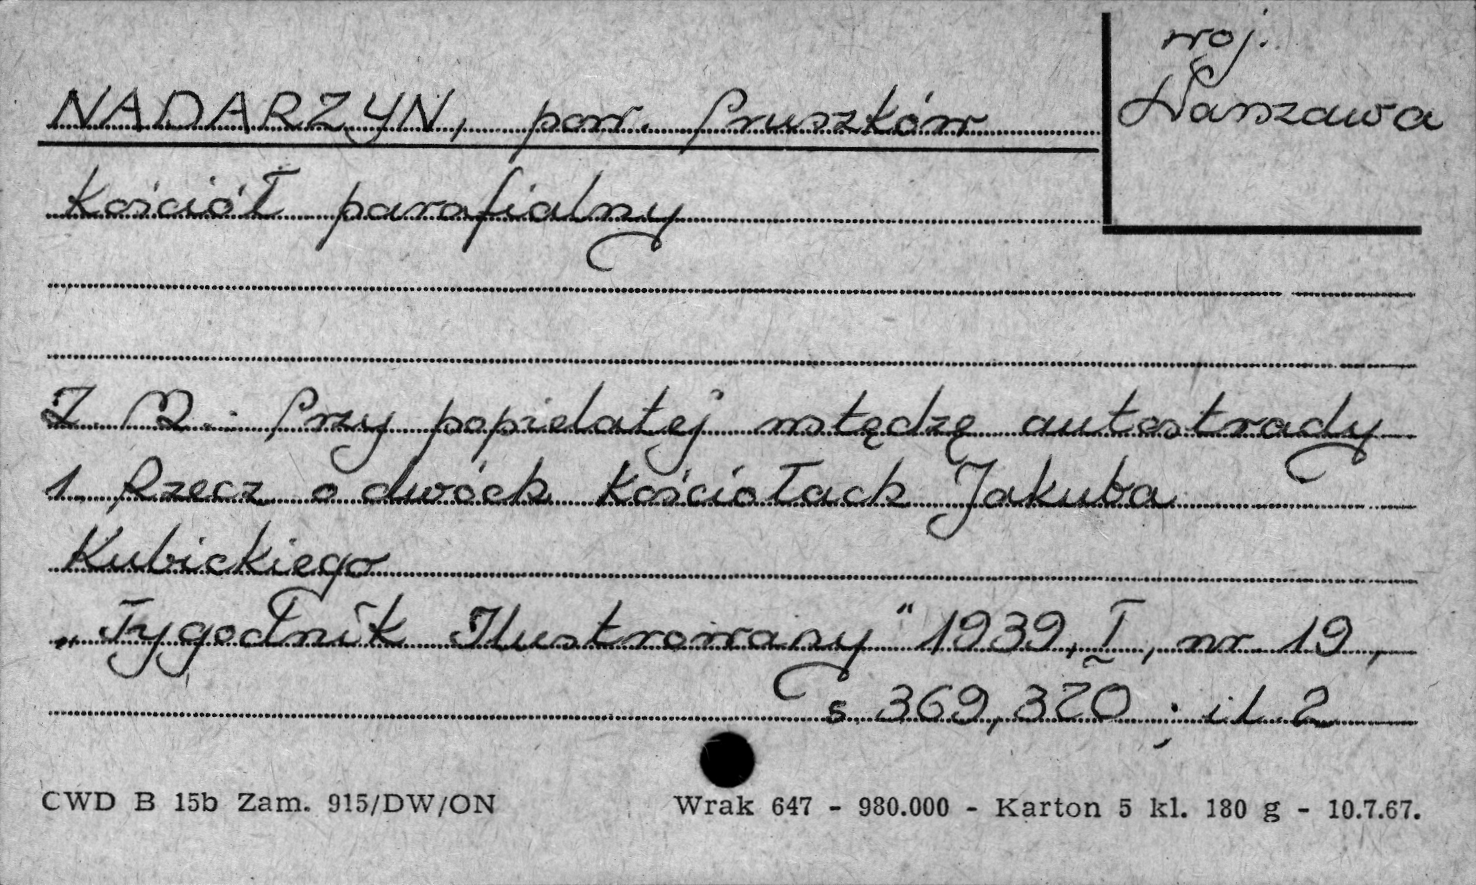 woj.
Warszawa
NADARZYN, pow. Pruszków
Kościół parafialny
Z. M.: Przy popielatej wstędzę autostrady
1. Rzecz o dwóch kościołach Jakuba
Kubickiego
„Tygodnik Ilustrowany" 1939, I, nr 19,
s. 369, 370 ; il. 2
CWD B 15b Zam. 915/DW/ON Wrak 647 - 980.000 - Karton 5 kl. 180 g - 10.7.67.